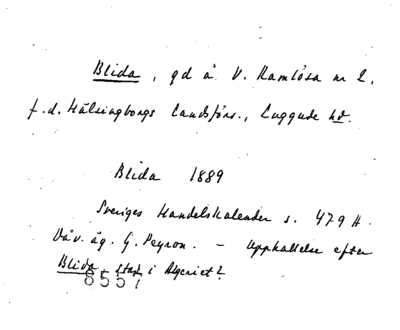 Blida, gd å V. Ramlösa nr 2,
f.d. Hälsingborgs landsförs., Luggude hd.
Blida 1889
Sveriges Handelskalender s. 479 H.
Dåv. äg. G. Peyron. – Uppkallelse efter
Blida, stad i Algeriet?
8557